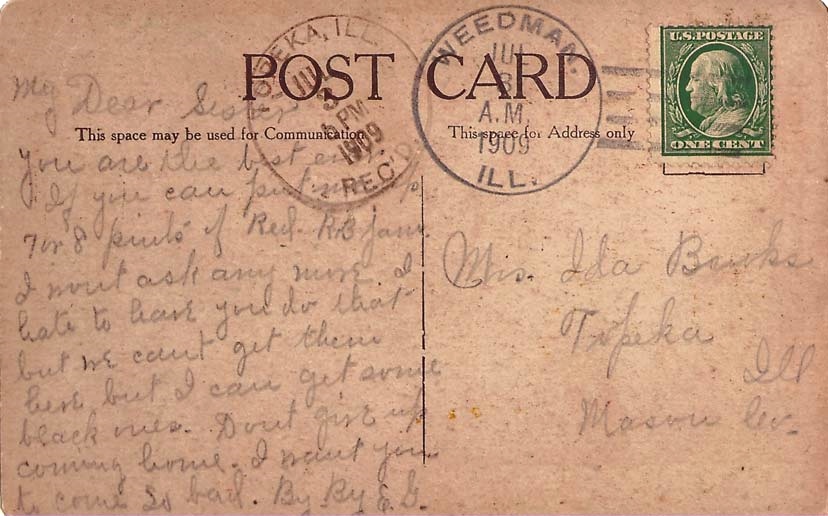 POST CARD
This space may be used for Communication
This space for Address only
TOPEKA, ILL.
JUL
3
PM
1909
REC'D.
WEEDMAN.
JUL
3
A.M.
1909
ILL.
U.S. POSTAGE
ONE CENT
My Dear Sister
You are the best ever
If you can put me up
7 or 8 pints of Red. RB Jam
I wont ask any more. I
hate to have you do that
but we can't get them
here but I can get some
black ones. Dont give up
coming home. I want you
to come so bad. By By E.G.
Mrs. Ida Brooks
Topeka
Ill
Mason Co.